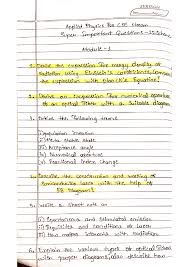 Applied Physics for CSE Stream
Super Important Questions
Module-1
1. Derive the expression for energy density of
radiation using Einstein's coefficients
expression with Planck's Equation
2. Derive an expression for numerical aperture
of an optical fiber with a suitable diagram
3. Define the following terms
i) Population inversion
ii) Meta stable state
iii) Acceptance angle
iv) Numerical aperture
v) Fractional Index Change
4. Describe the construction and working of
Semiconductor laser with the help of
EB Diagram
5. Write a short note on
i) Spontaneous and stimulated emission
ii) Requisites and conditions of laser
iii) interacts with radiation
6. Explain the various types of optical fibers
with diagrams